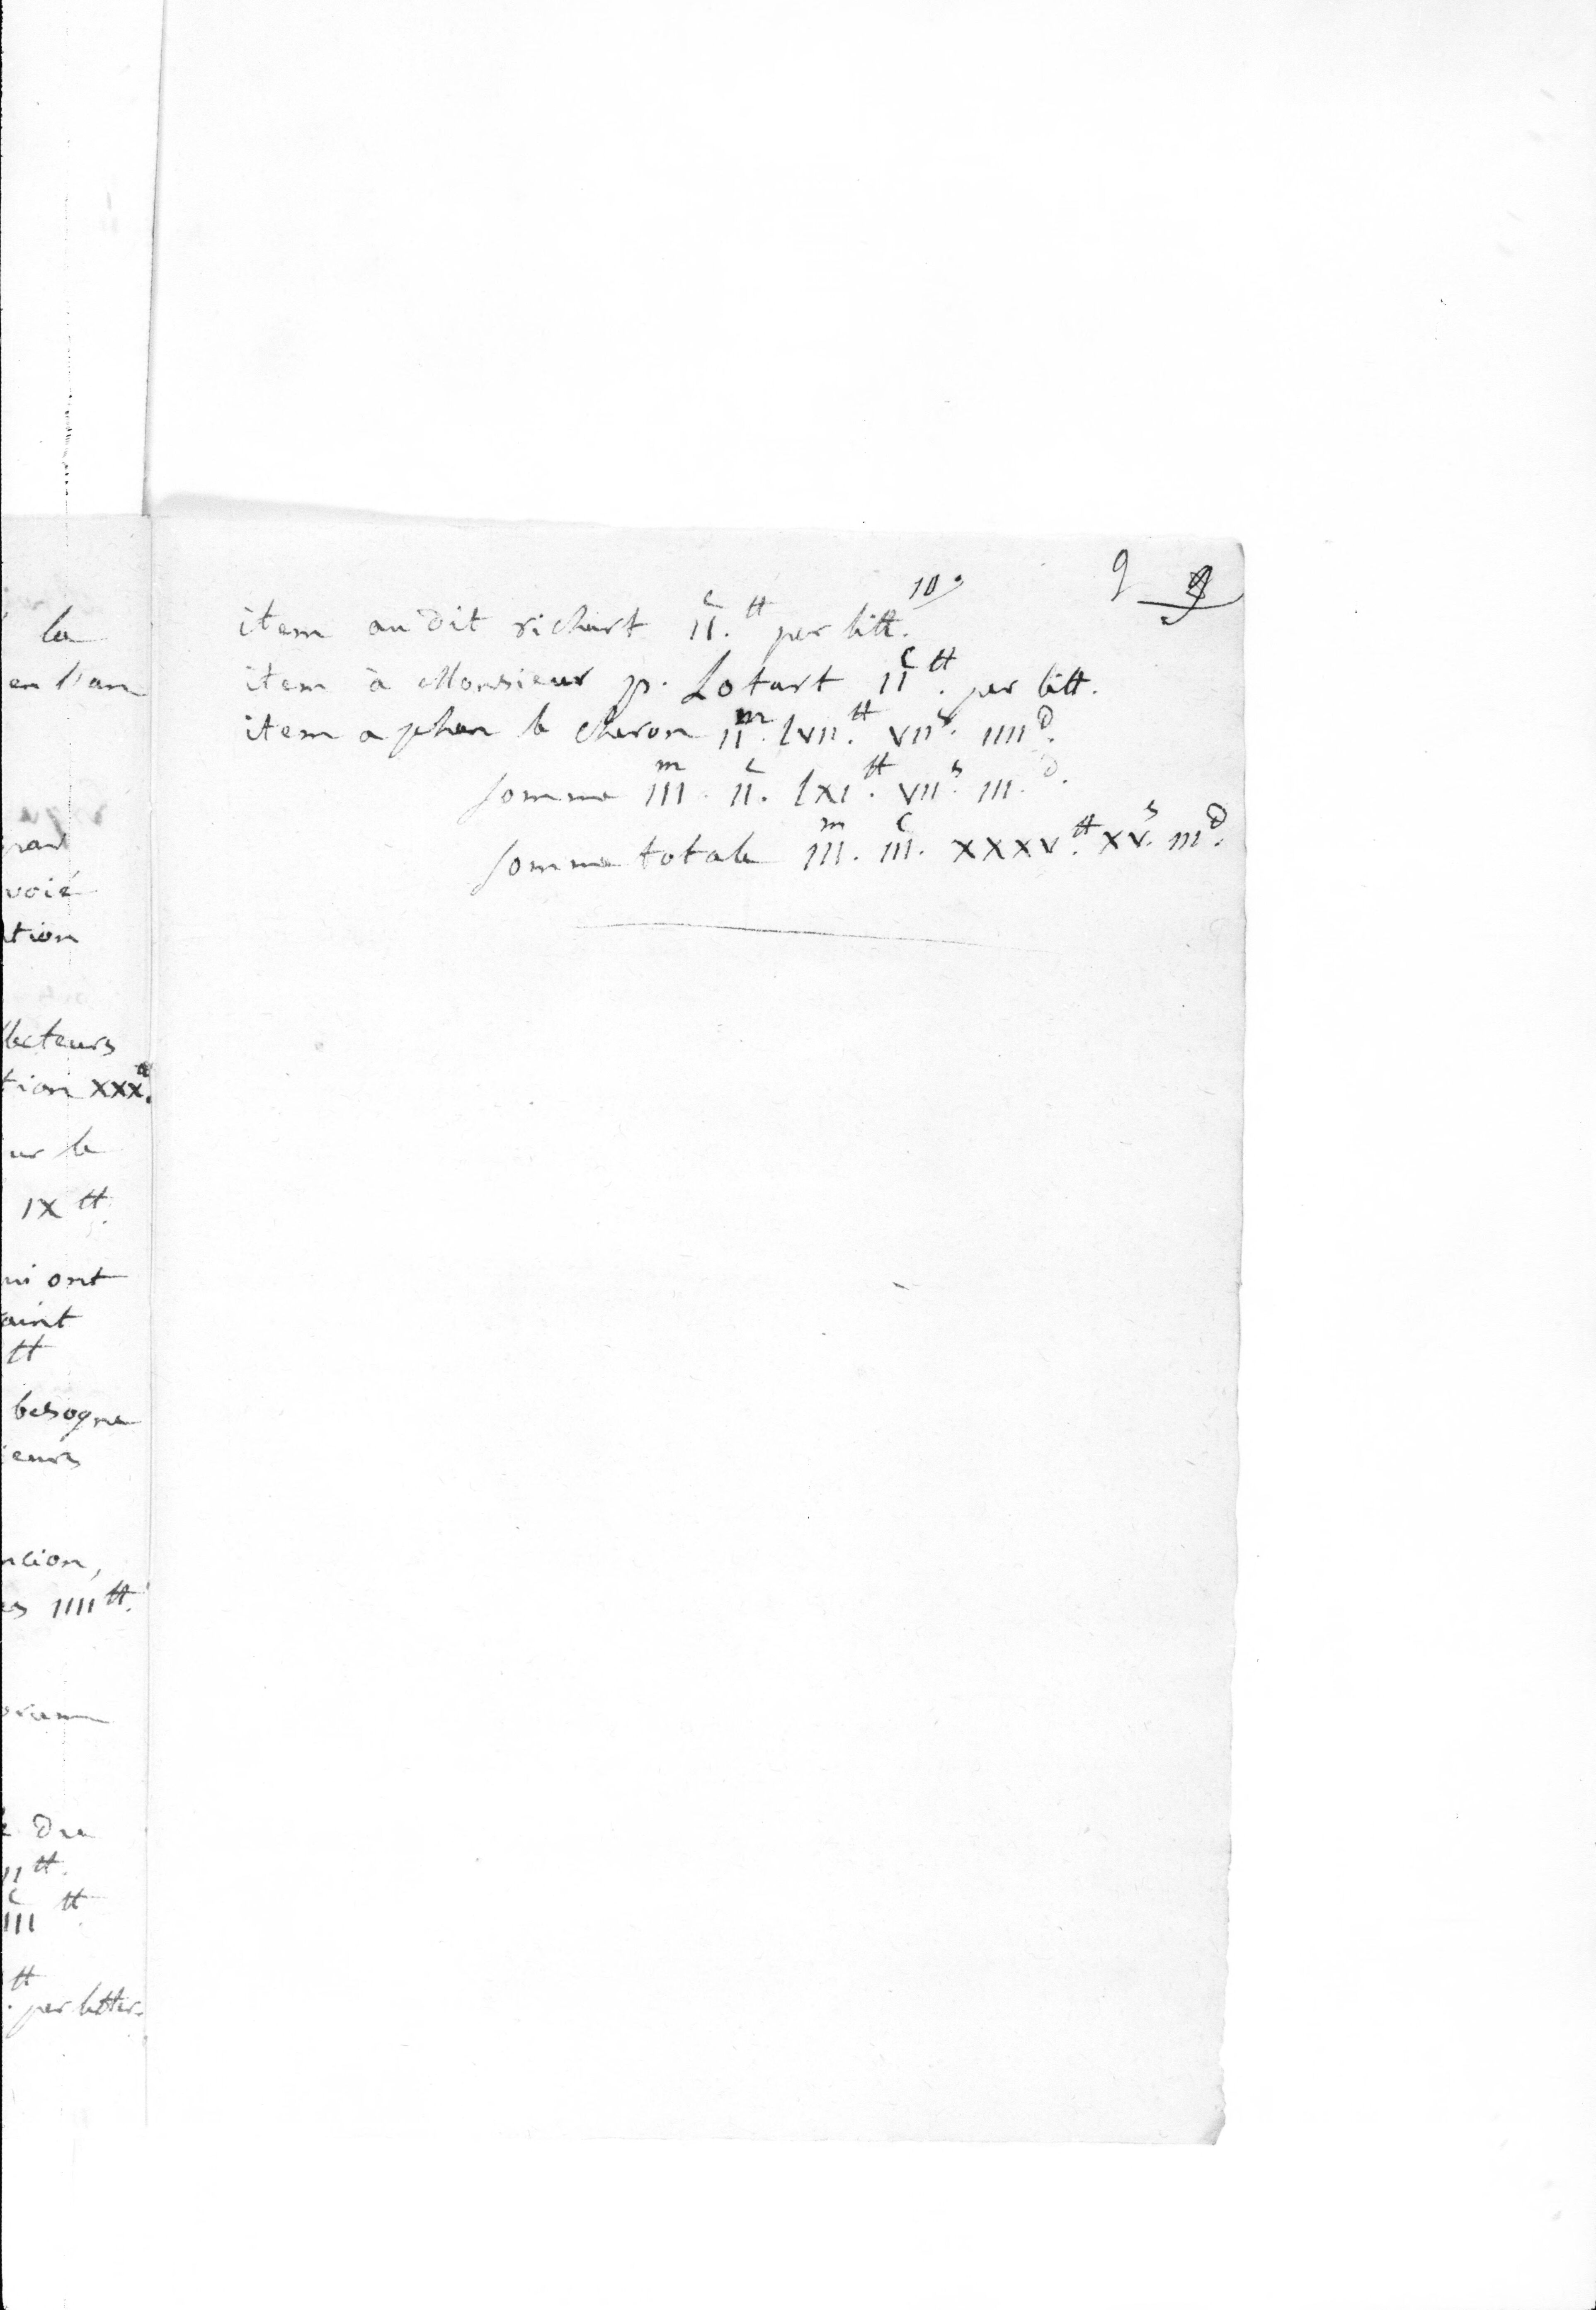 la
en l'an
voié
tion
lecteurs
tion xxx.tt
ur le
IX tt.
ui ont
aint
tt
besogne
ieurs
ncion,
es IIII tt.
é du
II tt.
III c tt
tt. per litter.
9 9
10
item audit richart II.c tt per litt.
item à Monsieur p. Lotart II c tt. per litt.
item a jehan le cheron II m. lvii. tt vii s. iiii d.
somme III m. II c. lxi. tt vii s. iii. d.
somme totale III m. III c. xxxv. tt xv. s iii d.